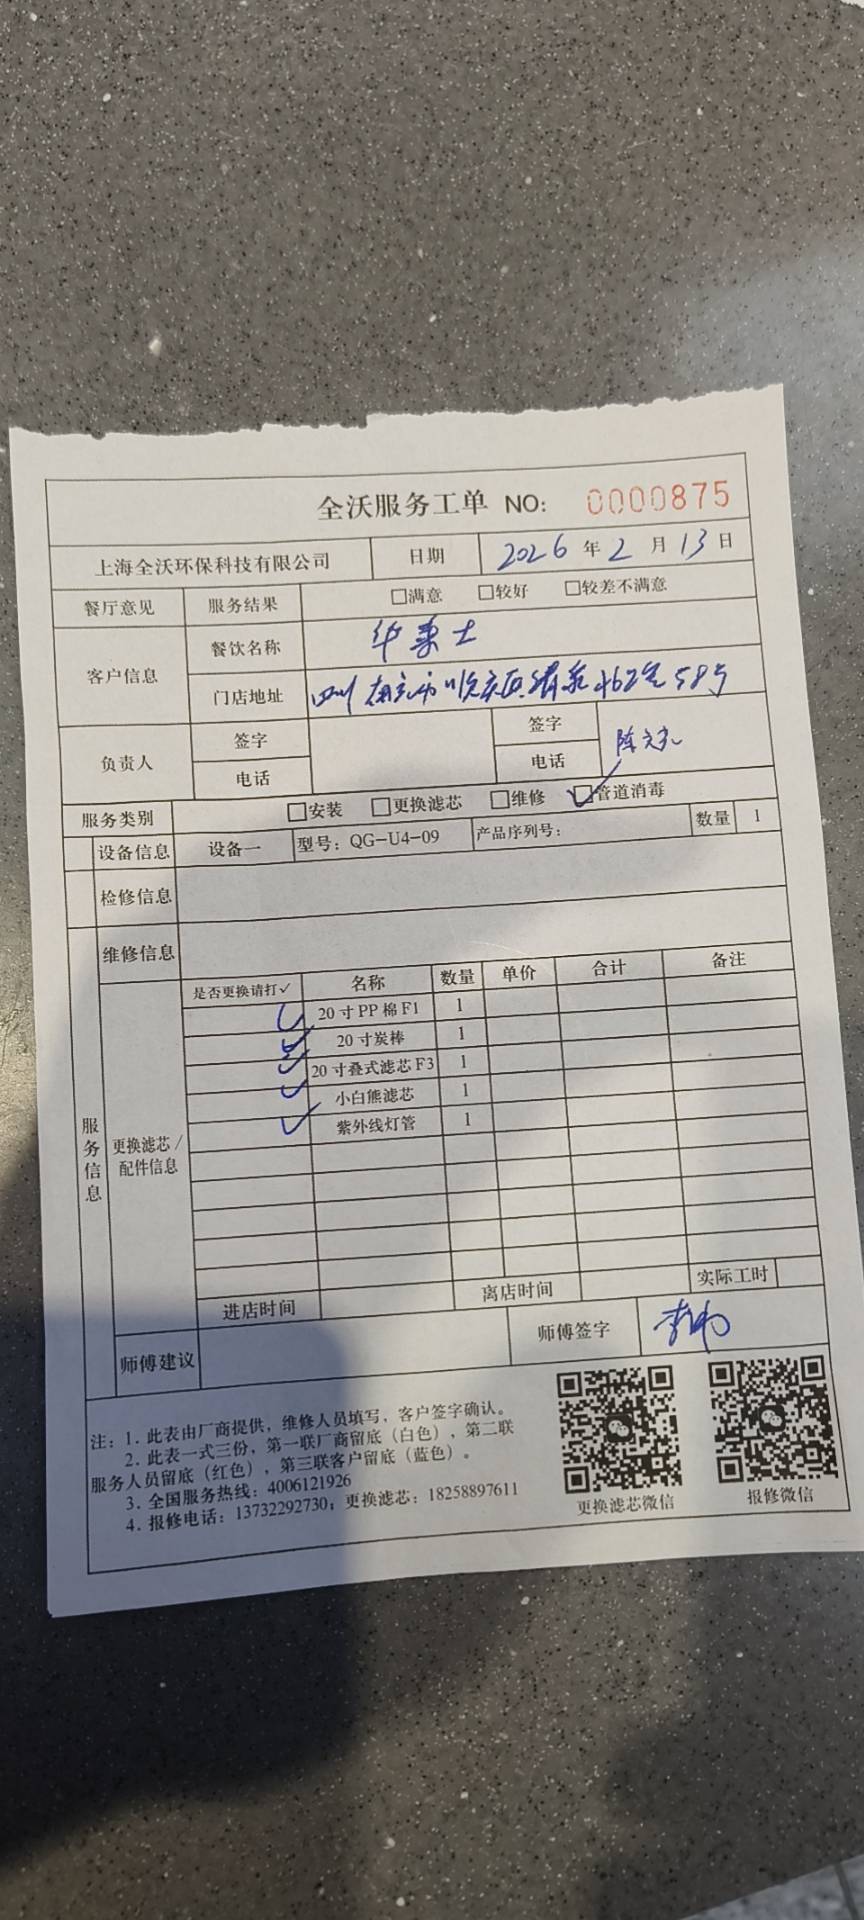 全沃服务工单 NO: 0000875
上海全沃环保科技有限公司 日期 2026年2月13日
餐厅意见 服务结果 □满意 □较好 □较差不满意
客户信息 餐饮名称 华莱士
门店地址 四川南充市顺庆区 58号
负责人 签字 签字 陈
电话 电话
服务类别 □安装 □更换滤芯 □维修 ☑管道消毒
设备信息 设备一 型号：QG-U4-09 产品序列号： 数量 1
检修信息
维修信息
服务信息 更换滤芯/配件信息
是否更换请打✓ 名称 数量 单价 合计 备注
✓ 20寸PP棉F1 1
✓ 20寸炭棒 1
✓ 20寸叠式滤芯F3 1
✓ 小白熊滤芯 1
✓ 紫外线灯管 1
进店时间 离店时间 实际工时
师傅建议 师傅签字
注：1. 此表由厂商提供，维修人员填写，客户签字确认。
2. 此表一式三份，第一联厂商留底（白色），第二联
服务人员留底（红色），第三联客户留底（蓝色）。
3. 全国服务热线：4006121926
4. 报修电话：13732292730；更换滤芯：18258897611
更换滤芯微信 报修微信